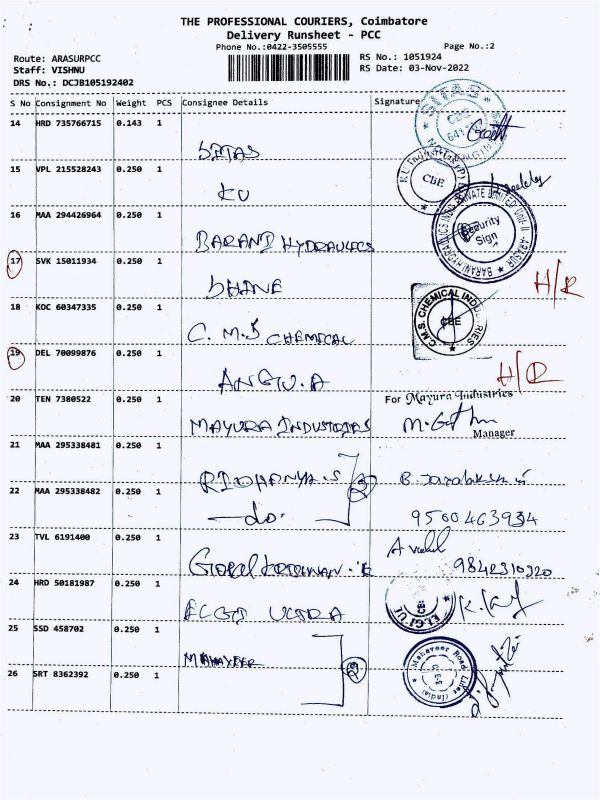 THE PROFESSIONAL COURIERS, Coimbatore
Delivery Runsheet - PCC
Phone No.:0422-3505555 Page No.:2
Route: ARASURPCC RS No.: 1051924
Staff: VISHNU RS Date: 03-Nov-2022
DRS No.: DCJB105192402
S No Consignment No Weight PCS Consignee Details Signature
14 HRD 735766715 0.143 1
SITAS
15 VPL 215528243 0.250 1
KU
CBE
16 MAA 294426964 0.250 1
BARANI HYDRAULICS
Security Sign
17 SVK 15011934 0.250 1
DHINE
H/R
18 KOC 60347335 0.250 1
C.M.S CHEMICAL
C.M.S. CHEMICAL INDUSTRIES
CBE
19 DEL 70099876 0.250 1
ANGU.A
H/R
20 TEN 7380522 0.250 1
For Mayura Industries
MAYURA INDUSTRIES
Manager
21 MAA 295338481 0.250 1
RIDHANYA.S
22 MAA 295338482 0.250 1
-do-
2
9560463934
23 TVL 6191400 0.250 1
9842310320
24 HRD 50181987 0.250 1
ELGI ULTRA
25 SSD 458702 0.250 1
MAHAVEER
26 SRT 8362392 0.250 1
2